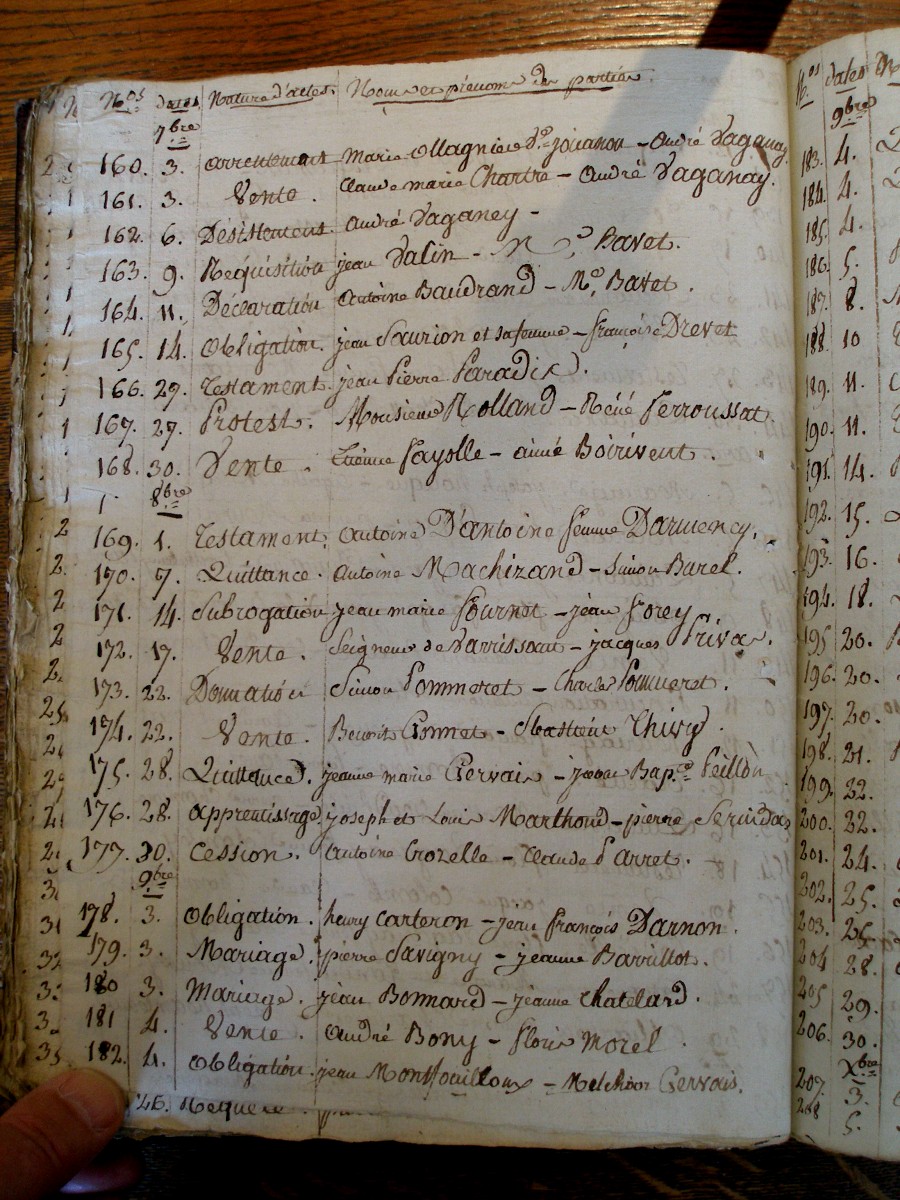 Nos dates Nature d'actes. Noms et prénoms des parties.
7bre
160. 3. arrentement Marie Ollagnier Ve jouanon - André Vaganay
161. 3. Vente. Claude marie Chartre - André Vaganay.
162. 6. Désistement André Vaganey -
163. 9. Requisition jean Valin - Me, Bavet.
164. 11. Déclaration Antoine Baudrand - Me, Bavet.
165. 14. Obligation. jean Saurion et sa femme - françoise Drevet
166. 29. Testament. jean Pierre Paradis.
167. 27. Protest. Monsieur Rolland - Réné Ferroussat
168. 30. Vente. Etienne Fayolle - aimé Boirivent.
8bre
169. 1. Testament. Antoine D'antoine femme Darmeney.
170. 7. Quittance. Antoine Machizand - Simon Burel.
171. 14. Subrogation jean marie fournet - jean forey
172. 17. Vente. Seigneur de Varrissant - jacques Privas.
173. 22. Donnation Simon Pommeret - Charle Pommeret.
174. 22. Vente. Benoit Gonnet - Thivy.
175. 28. Quittance. jeanne marie Gervais - Bap.te Peillon
176. 28. apprentissage joseph et Louis Marthoud - pierre
177. 30. Cession. Antoine Crozelle - Claude Parret.
9bre
178. 3. Obligation. henry Carteron - jean françois Darnon.
179. 3. Mariage. pierre Savigny - jeanne Barrillot.
180 3. Mariage. jean Bonnard - jeanne Chatelard.
181 4. Vente. André Bony - floris Morel
182. 4. Obligation. jean Montfouilloux - Melchior Gervais.
Requere.
Nos dates
9bre
183. 4.
184. 4.
185. 4.
186. 5.
187. 8.
188. 10
189. 11.
190. 11.
191. 14.
192. 15.
193. 16.
194. 18.
195 20.
196. 20.
197. 20.
198. 21.
199. 22.
200. 22.
201. 24.
202. 25.
203. 25.
204 28.
205 29.
206. 30.
Xbre
207. 3.
208 5.